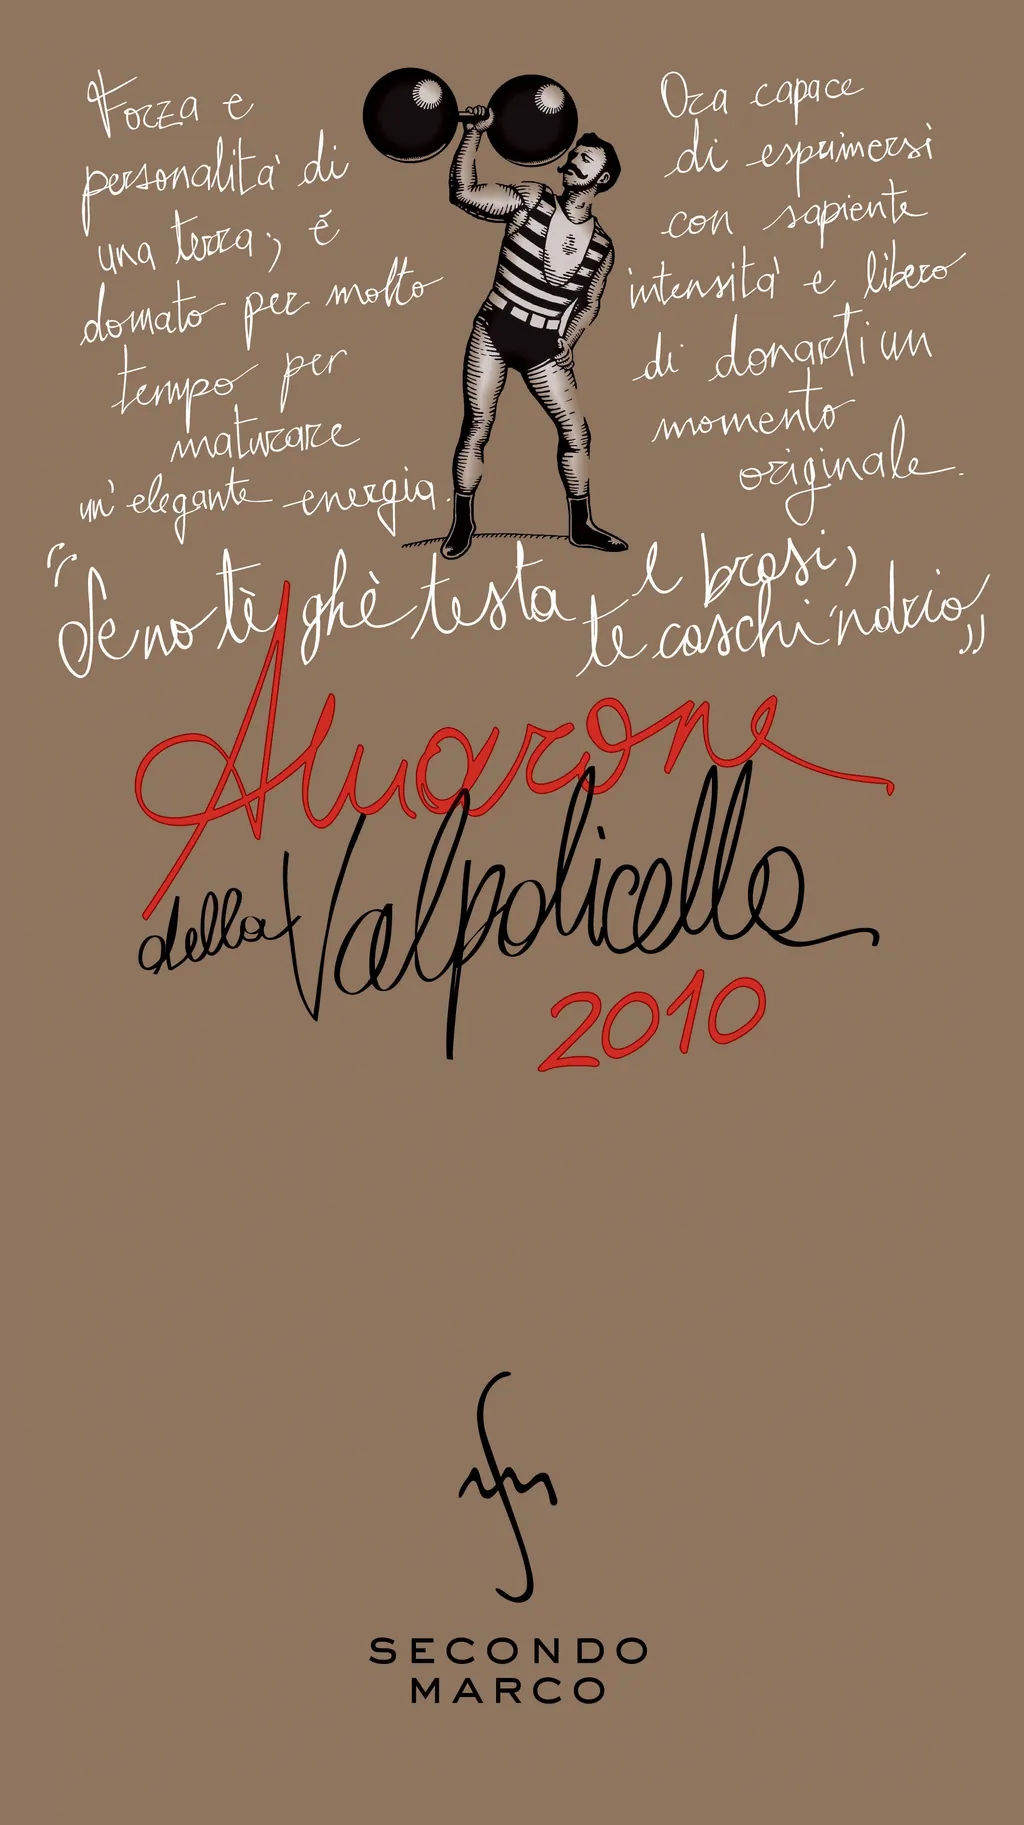 Forza e
personalità di
una terra; è
domato per molto
tempo per
maturare
un' elegante energia.
Ora capace
di esprimersi
con sapiente
intensità e libero
di donarti un
momento
originale.
"Se no tè ghè testa e brasi,
te caschi 'ndrio"
Amarone
della Valpolicella
2010
SECONDO
MARCO